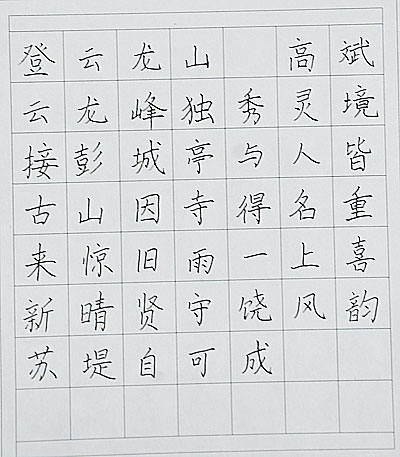 登云龙山 高斌
云龙峰独秀灵境
接彭城亭与人皆
古山因寺得名重
来惊旧雨一上喜
新晴贤守饶风韵
苏堤自可成